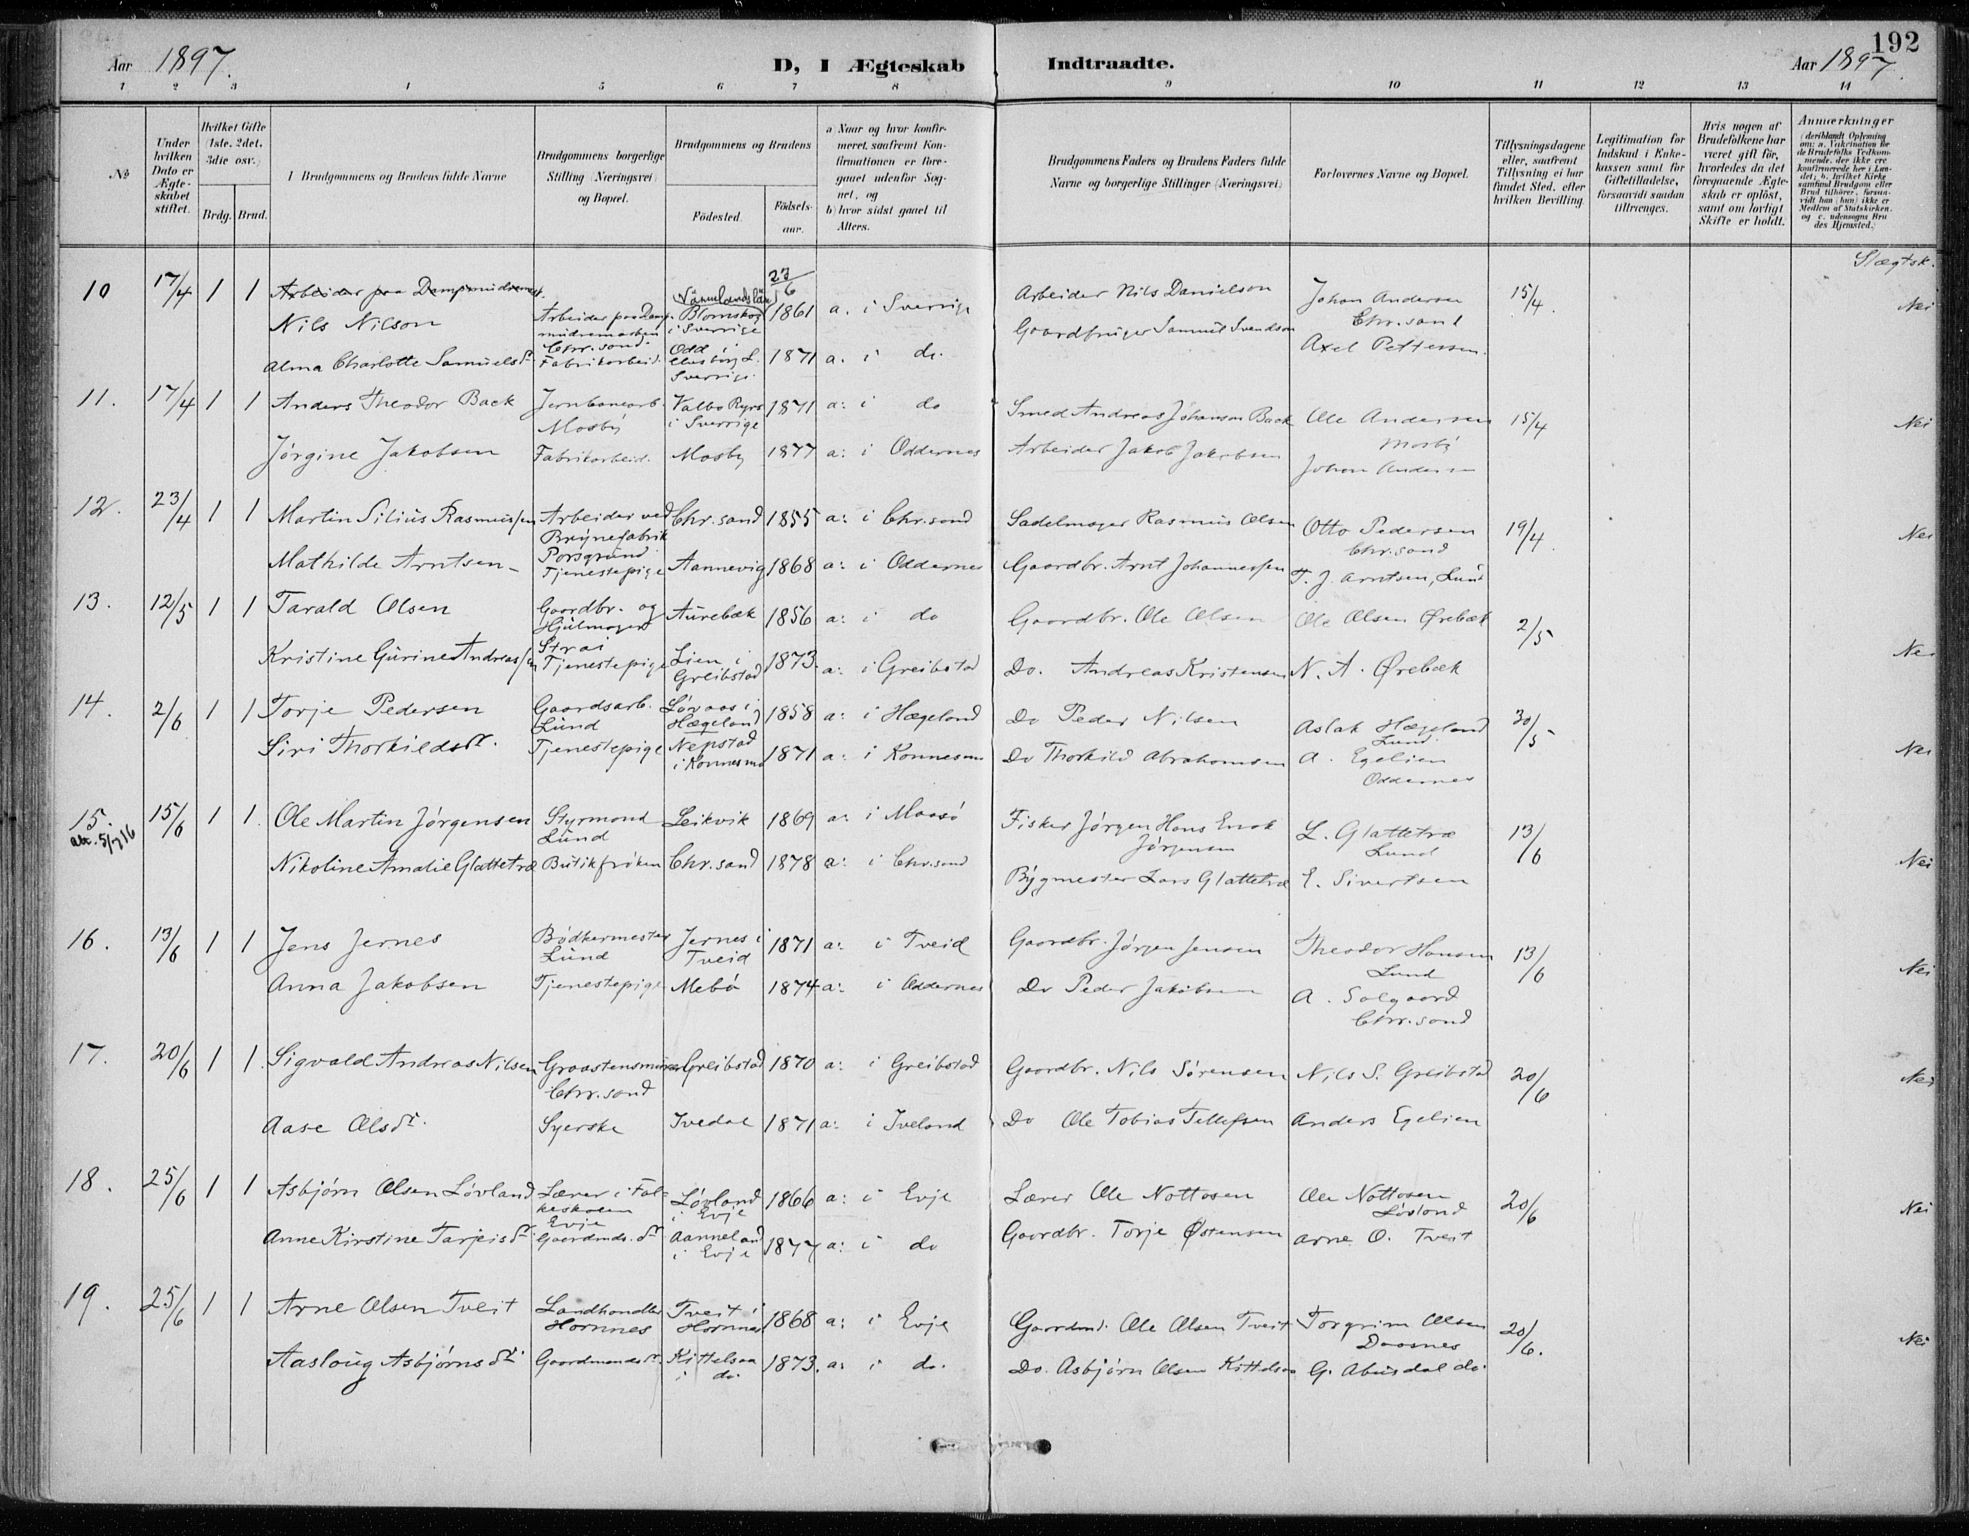 192
Aar 1897.
D, I Ægteskab Indtraadte.
Aar 1897.
1 2 3 4 5 6 7 8 9 10 11 12 13 14
No
Under hvilken Dato er Ægteskabet stiftet.
Hvilket Gifte (1ste, 2det, 3die osv.)
Brdg. Brud.
1 Brudgommens og Brudens fulde Navne
Brudgommens borgerlige Stilling (Næringsvei) og Bopæl.
Brudgommens og Brudens
Fødested.
Fødselsaar.
a) Naar og hvor konfirmeret, saafremt Konfirmationen er foregaaet udenfor Sognet, og
b) hvor sidst gaaet til Alters.
Brudgommens Faders og Brudens Faders fulde Navne og borgerlige Stillinger (Næringsvei)
Forlovernes Navne og Bopæl.
Tillysningsdagene eller, saafremt Tillysning ei har fundet Sted, efter hvilken Bevilling.
Legitimation for Indskud i Enkekassen samt for Giftetilladelse, forsaavidt saadan tiltrænges.
Hvis nogen af Brudefolkene har været gift før, hvorledes da det foregaaende Ægteskab er opløst, samt om lovligt Skifte er holdt.
Anmærkninger
(deriblandt Oplysning om: a. Vakcination for de Brudefolks Vedkommende, der ikke ere konfirmerede her i Landet; b. hvilket Kirkesamfund Brudgom eller Brud tilhører, forsaavidt han (hun) ikke er Medlem af Statskirken, og c. udensogns Brudes Hjemsted.)
Slægtsk.
10 17/4 1 1 Arbeider paa Dampmudremask.
Nils Nilson Arbeider paa Dampmudremaskin Chr.sand. Värmlandslän Blomskog i Sverrige 23/6 1861 a. i Sverrige Arbeider Nils Danielson Johan Andersen Chr.sand 15/4 Nei
Alma Charlotte Samuelsdr Fabrikarbeid. Odd Elfsborg L. Sverrige 1871 a. i do. Gaardbruger Samuel Svendson Axel Pettersen.
11. 17/4 1 1 Anders Theodor Back Jernbanearb. Mosby Valbo Ryrs i Sverrige 1871 a: i do Smed Andreas Johanson Back Ole Andersen Mosby 15/4 Nei
Jørgine Jakobsen Fabrikarbeid. Mosby 1877 a: i Oddernes Arbeider Jakob Jakobsen Johan Andersen
12. 23/4 1 1 Martin Silius Rasmussen Arbeider ved Brynefabrik Porsgrund Chr.sand 1855 a: i Chr.sand Sadelmager Rasmus Olsen Otto Pedersen Chr.sand 19/4. Nei
Mathilde Arntsen- Tjenestepige Aannevig 1868 a: i Oddernes Gaardbr. Arnt Johannessen T. J. Arntsen, Lund
13. 12/5 1 1 Tarald Olsen Gaardbr. og Hjulmager Strai Aurebæk 1856 a: i do Gaardbr. Ole Olsen Ole Olsen Ørebæk 2/5 Nei
Kristine Gurine Andreassen Tjenestepige Lien i Greibstad 1873. a: i Greibstad Do. Andreas Kristensen N. A. Ørebæk
14. 2/6 1 1 Torje Pedersen Gaardsarb. Lund Løvaas i Hægeland 1858 a: i Hægeland Do Peder Nilsen Aslak Hægeland Lund. 30/5 Nei
Siri Thorkildsdr. Tjenestepige Nepstad i Konnesmo 1871 a: i Konnesmo Do Thorkild Abrahamsen A. Egelien Oddernes
15. 15/6 1 1 Ole Martin Jørgensen Styrmand Lund Leikvik 1869 a: i Maasø Fisker Jørgen Hans Enok Jørgensen L. Glattetræ Lund 13/6 Nei
Nikoline Amalie Glattetræ Butikfrøken Chr.sand 1878 a: i Chr.sand Bygmester Lars Glattetræ E. Sivertsen
16. 13/6 1 1 Jens Jernes Bødkermester Lund Jernes i Tveid 1871 a: i Tveid Gaardbr. Jørgen Jensen Theodor Hansen Lund 13/6 Nei
Anna Jakobsen Tjenestepige Mebø 1874 a: i Oddernes Do Peder Jakobsen A. Solgaard Chr.sand
17. 20/6 1 1 Sigvald Andreas Nilsen Graastensmurer Chr.sand Greibstad 1870 a: i Greibstad Gaardbr. Nils Sørensen Nils S. Greibstad 20/6 Nei
Aase Olsdr. Syerske Ivedal 1871 a: i Iveland Do Ole Tobias Tellefsen Anders Egelien
18. 25/6 1 1 Asbjørn Olsen Løvland Lærer i Folkeskolen Evje Løvland i Evje 1866 a: i Evje Lærer Ole Nottosen Ole Nottosen Løvland 20/6 Nei
Anne Kirstine Tarjeisdr Gaardmds.dr Aanneland i Evje 1877 a: i do Gaardbr. Torje Østensen Arne O. Tveit
19. 25/6 1 1 Arne Olsen Tveit Landhandler Hornnes Tveit i Hornnes 1868 a: i Evje Gaardmd. Ole Olsen Tveit Torgrim Olsen Daasnes 20/6. Nei
Aasloug Asbjørnsdr Gaardmandsdr. Kittelsaa i do. 1873. a: i do. Do. Asbjørn Olsen Kittelsaa G. Abusdal do.